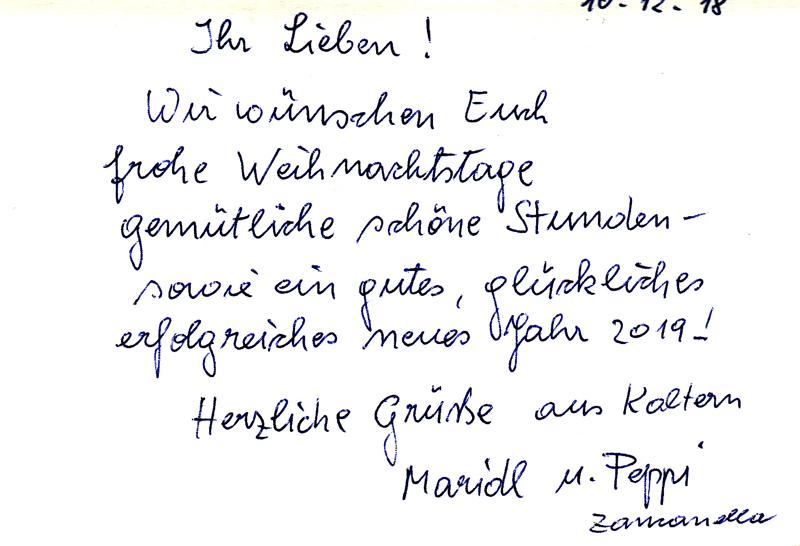 10-12-18
Ihr Lieben !
Wir wünschen Euch
frohe Weihnachtstage
gemütliche schöne Stunden -
sowie ein gutes, glückliches
erfolgreiches neues Jahr 2019!
Herzliche Grüße aus Kaltern
Maridl u. Peppi